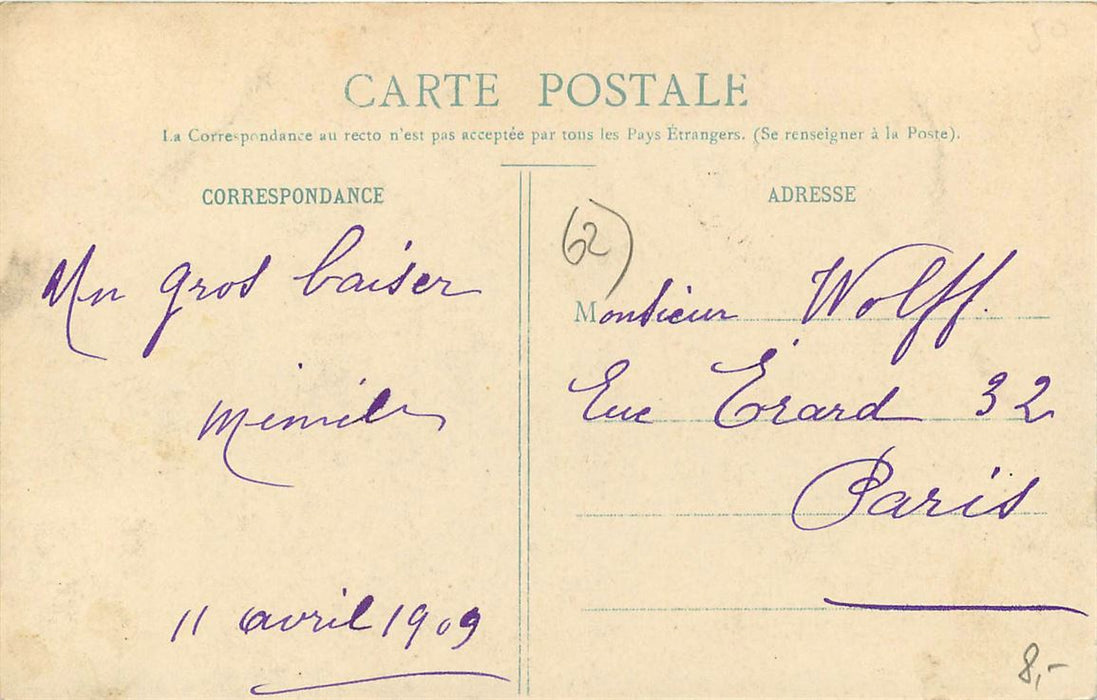 CARTE POSTALE
La Correspondance au recto n'est pas acceptée par tous les Pays Étrangers. (Se renseigner à la Poste).
CORRESPONDANCE
Un gros baiser
11 avril 1909
ADRESSE
(62)
Monsieur Wolff.
Rue Érard 32
Paris
8,-